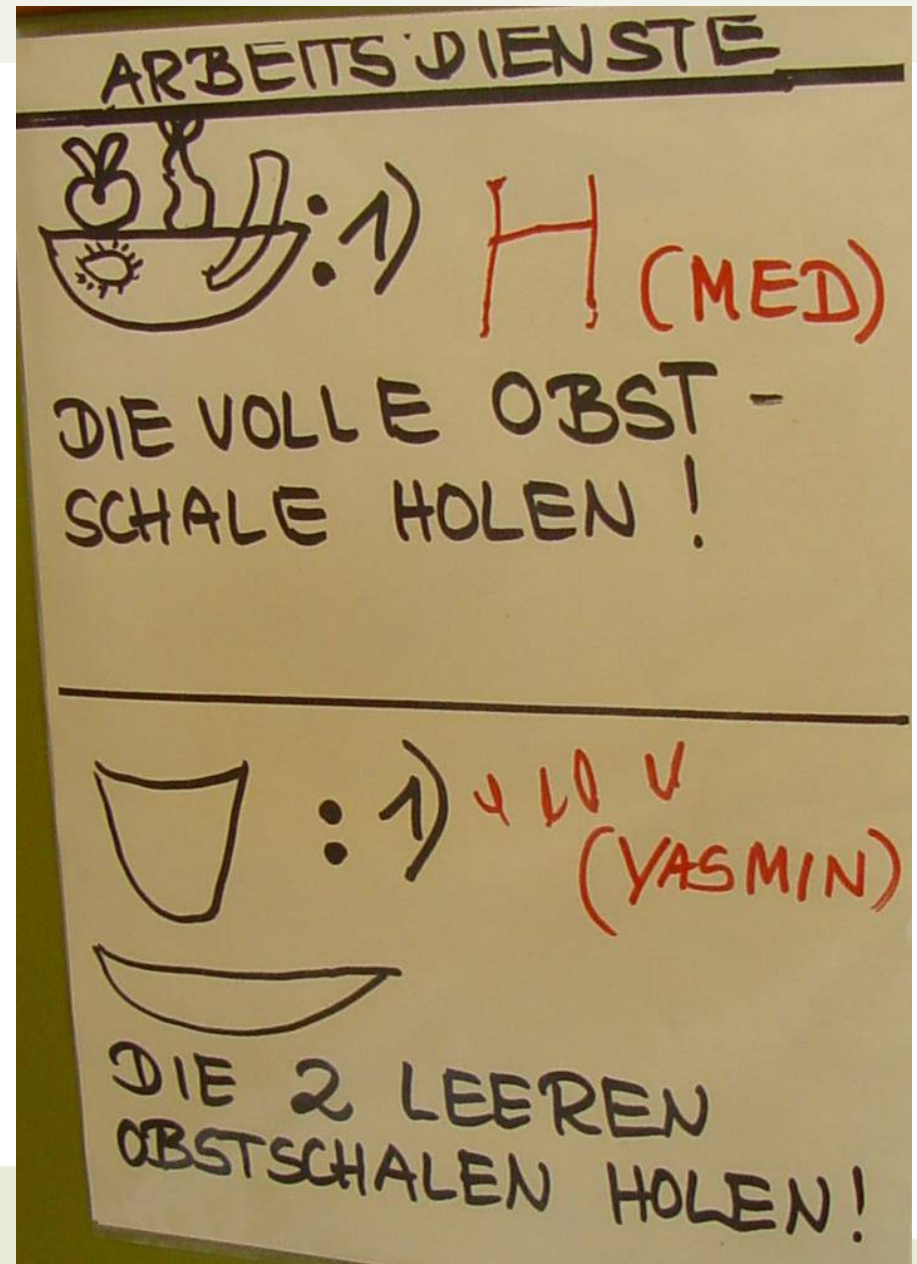 ARBEITS'DIENSTE
:1) H (MED)
DIE VOLLE OBST-
SCHALE HOLEN!
:1)
(YASMIN)
DIE 2 LEEREN
OBSTSCHALEN HOLEN!